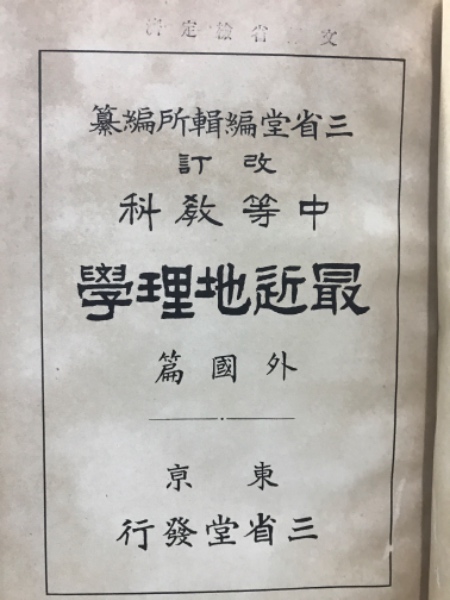 文部省檢定濟
三省堂編輯所編纂
改訂
中等敎科
最近地理學
外國篇
東亰
三省堂發行